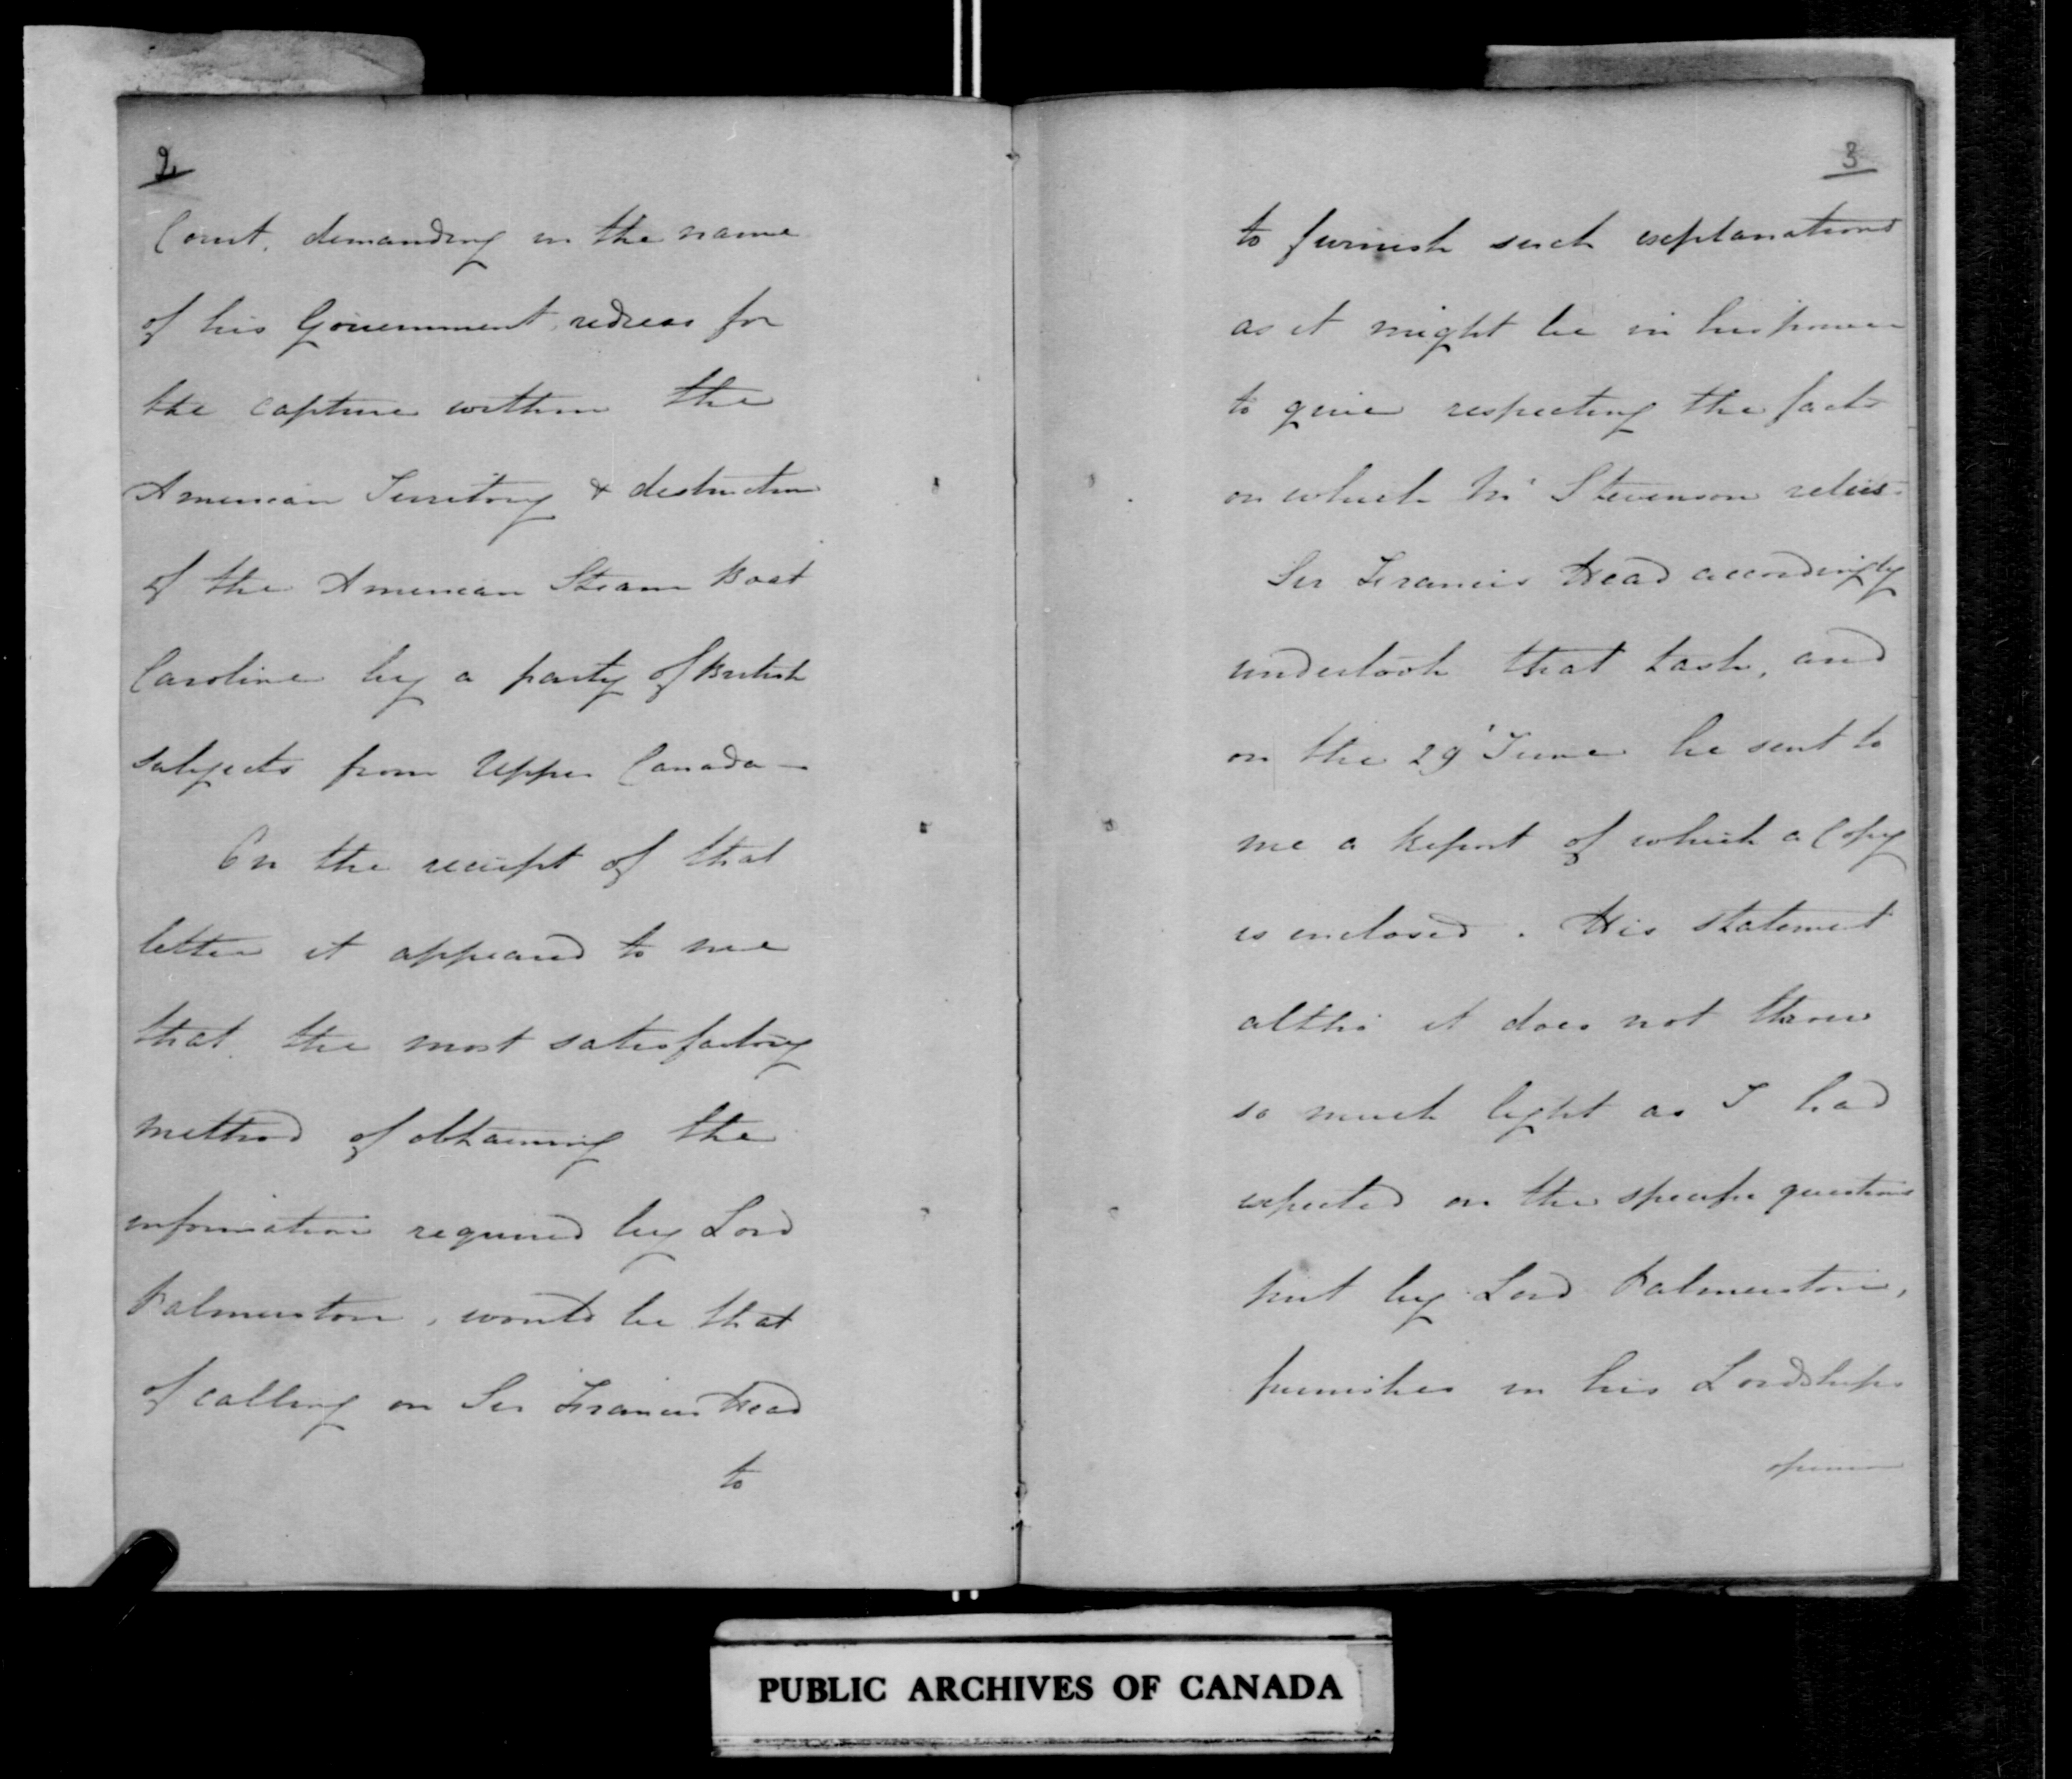 2
Court, demanding in the name
of his Government, redress for
the capture within the
American Territory & destruction
of the American Steam Boat
Caroline by a party of British
subjects from Upper Canada —
On the receipt of that
letter it appeared to me
that the most satisfactory
method of obtaining the
information required by Lord
Palmerston, would be that
of calling on Sir Francis Head
to
3
to furnish such explanations
as it might be in his power
to give respecting the facts
on which Mr Stevenson relies.
Sir Francis Head accordingly
undertook that task, and
on the 29 June he sent to
me a Report of which a Copy
is enclosed. His statement
altho' it does not throw
so much light as I had
expected on the specific questions
put by Lord Palmerston,
furnishes in his Lordships
opinion
PUBLIC ARCHIVES OF CANADA